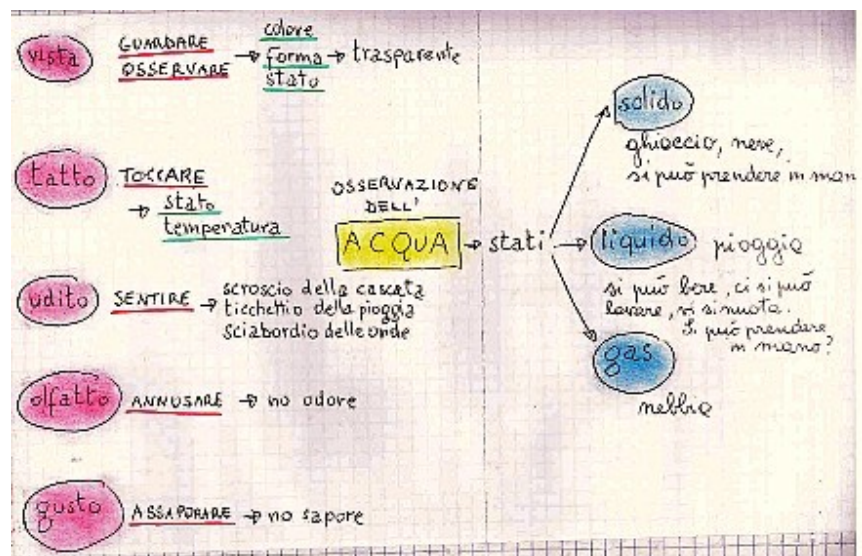 vista
GUARDARE
OSSERVARE
→ colore
forma → trasparente
stato
tatto
TOCCARE
→ stato
temperatura
udito
SENTIRE → scroscio della cascata
ticchettio della pioggia
sciabordio delle onde
olfatto
ANNUSARE → no odore
gusto
ASSAPORARE → no sapore
OSSERVAZIONE
DELL'
ACQUA → stati
solido
ghiaccio, neve,
si può prendere in man
liquido pioggia
si può bere, ci si può
lavare, vi si nuota.
Si può prendere
in mano?
gas
nebbia